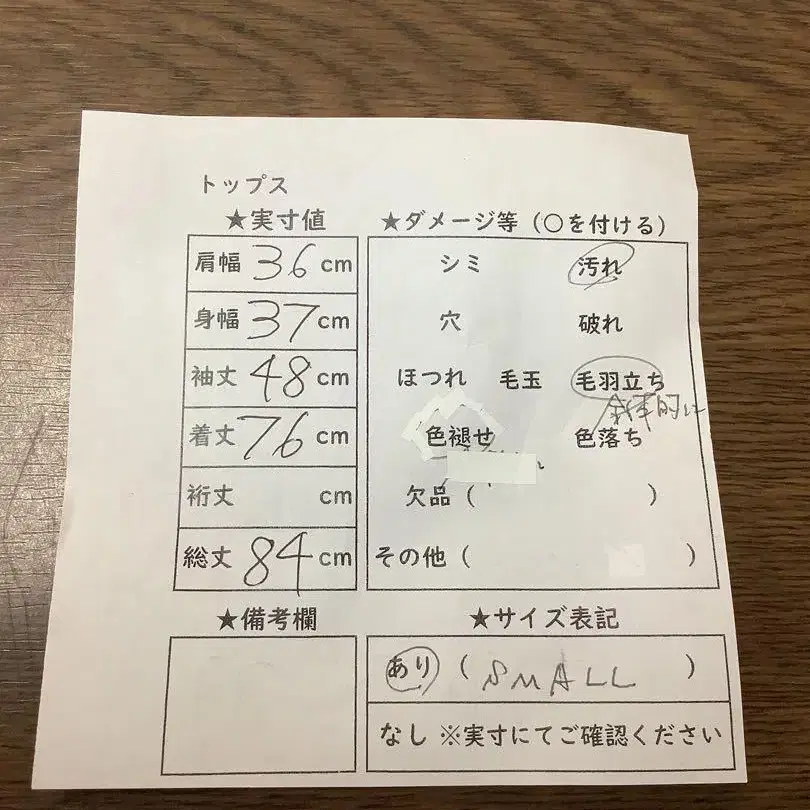 トップス
★実寸値
肩幅 36 cm
身幅 37 cm
袖丈 48 cm
着丈 76 cm
裄丈 cm
総丈 84 cm
★ダメージ等（○を付ける）
シミ 汚れ
穴 破れ
ほつれ 毛玉 毛羽立ち
全体的に
色褪せ 色落ち
欠品（ ）
その他（ ）
★備考欄
★サイズ表記
あり（SMALL）
なし ※実寸にてご確認ください